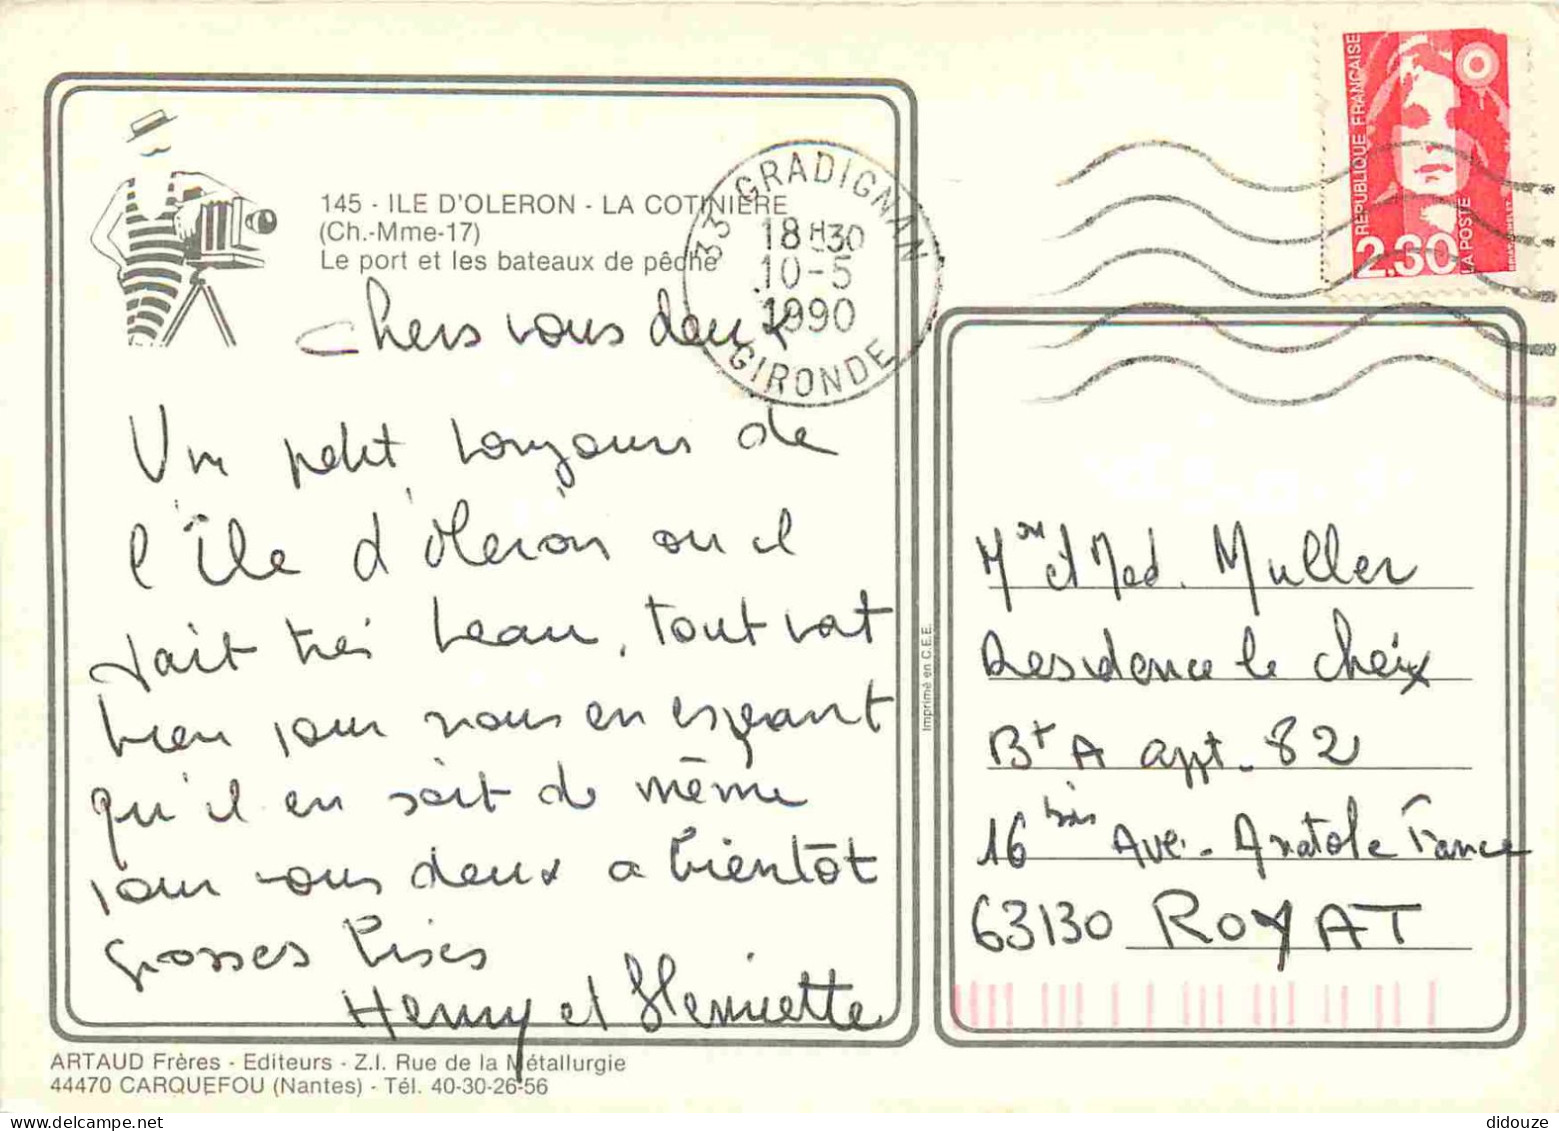 145 - ILE D'OLERON - LA COTINIERE
(Ch.-Mme-17)
Le port et les bateaux de pêche
33 GRADIGNAN
18 H 30
10-5
1990
GIRONDE
REPUBLIQUE FRANÇAISE
2,30
LA POSTE
Chers vous deux
Un petit toujours de
l'île d'oleron ou il
fait très beau, tout vat
bien pour nous en espeant
qu'il en soit de même
pour vous deux a bientôt
grosses bises
Henry et Henriette
Mr et Mad. Muller
Residence le cheix
Bt A appt. 82
16 bis Ave. Anatole France
63130 ROYAT
Imprimé en C.E.E.
ARTAUD Frères - Editeurs - Z.I. Rue de la Métallurgie
44470 CARQUEFOU (Nantes) - Tél. 40-30-26-56
didouze